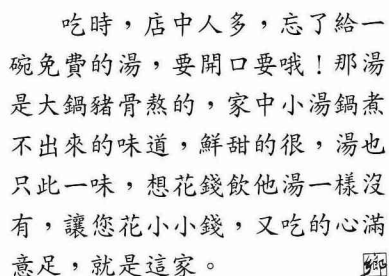 吃時，店中人多，忘了給一
碗免費的湯，要開口要哦！那湯
是大鍋豬骨熬的，家中小湯鍋煮
不出來的味道，鮮甜的很，湯也
只此一味，想花錢飲他湯一樣沒
有，讓您花小小錢，又吃的心滿
意足，就是這家。
鄉